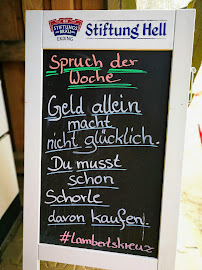 STIFTUNGS
BRÄU
ERDING
Stiftung Hell
Spruch der
Woche
Geld allein
macht
nicht glücklich.
Du musst
schon
Schorle
davon kaufen.
#Lambertskreuz